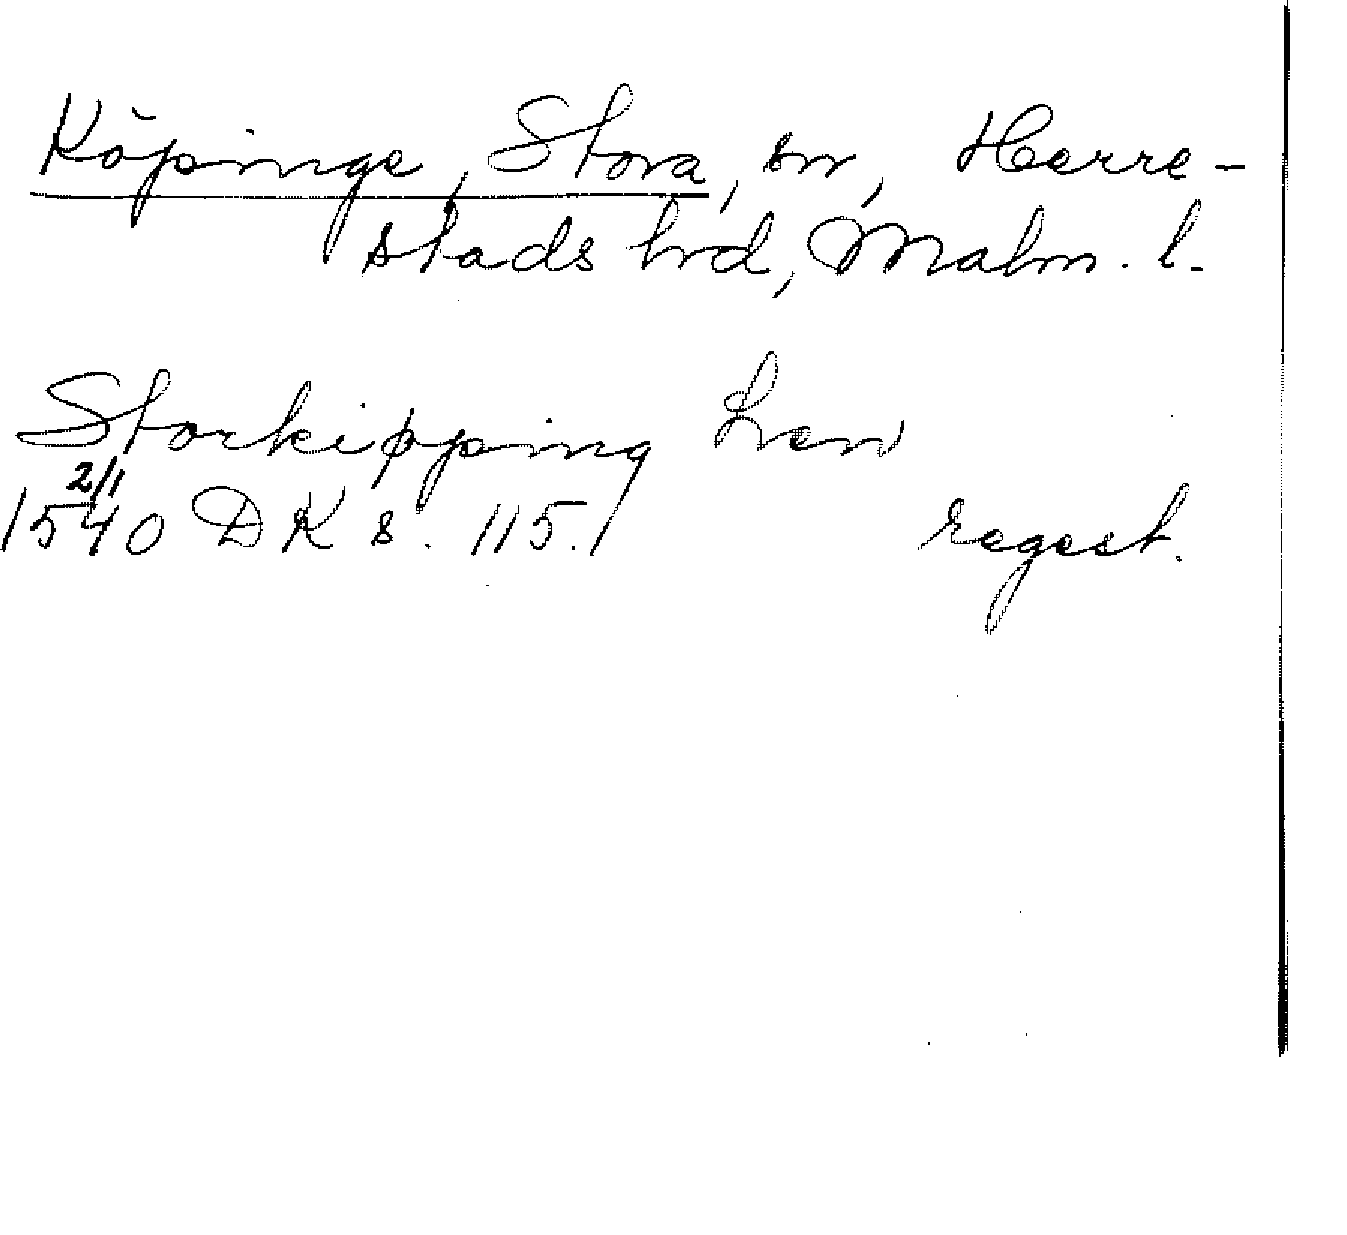 Köpinge, Stora, sn, Herre-
stads hrd, Malm. l.
Storkipping Len
2/1
1540 DK s. 115.
regest.